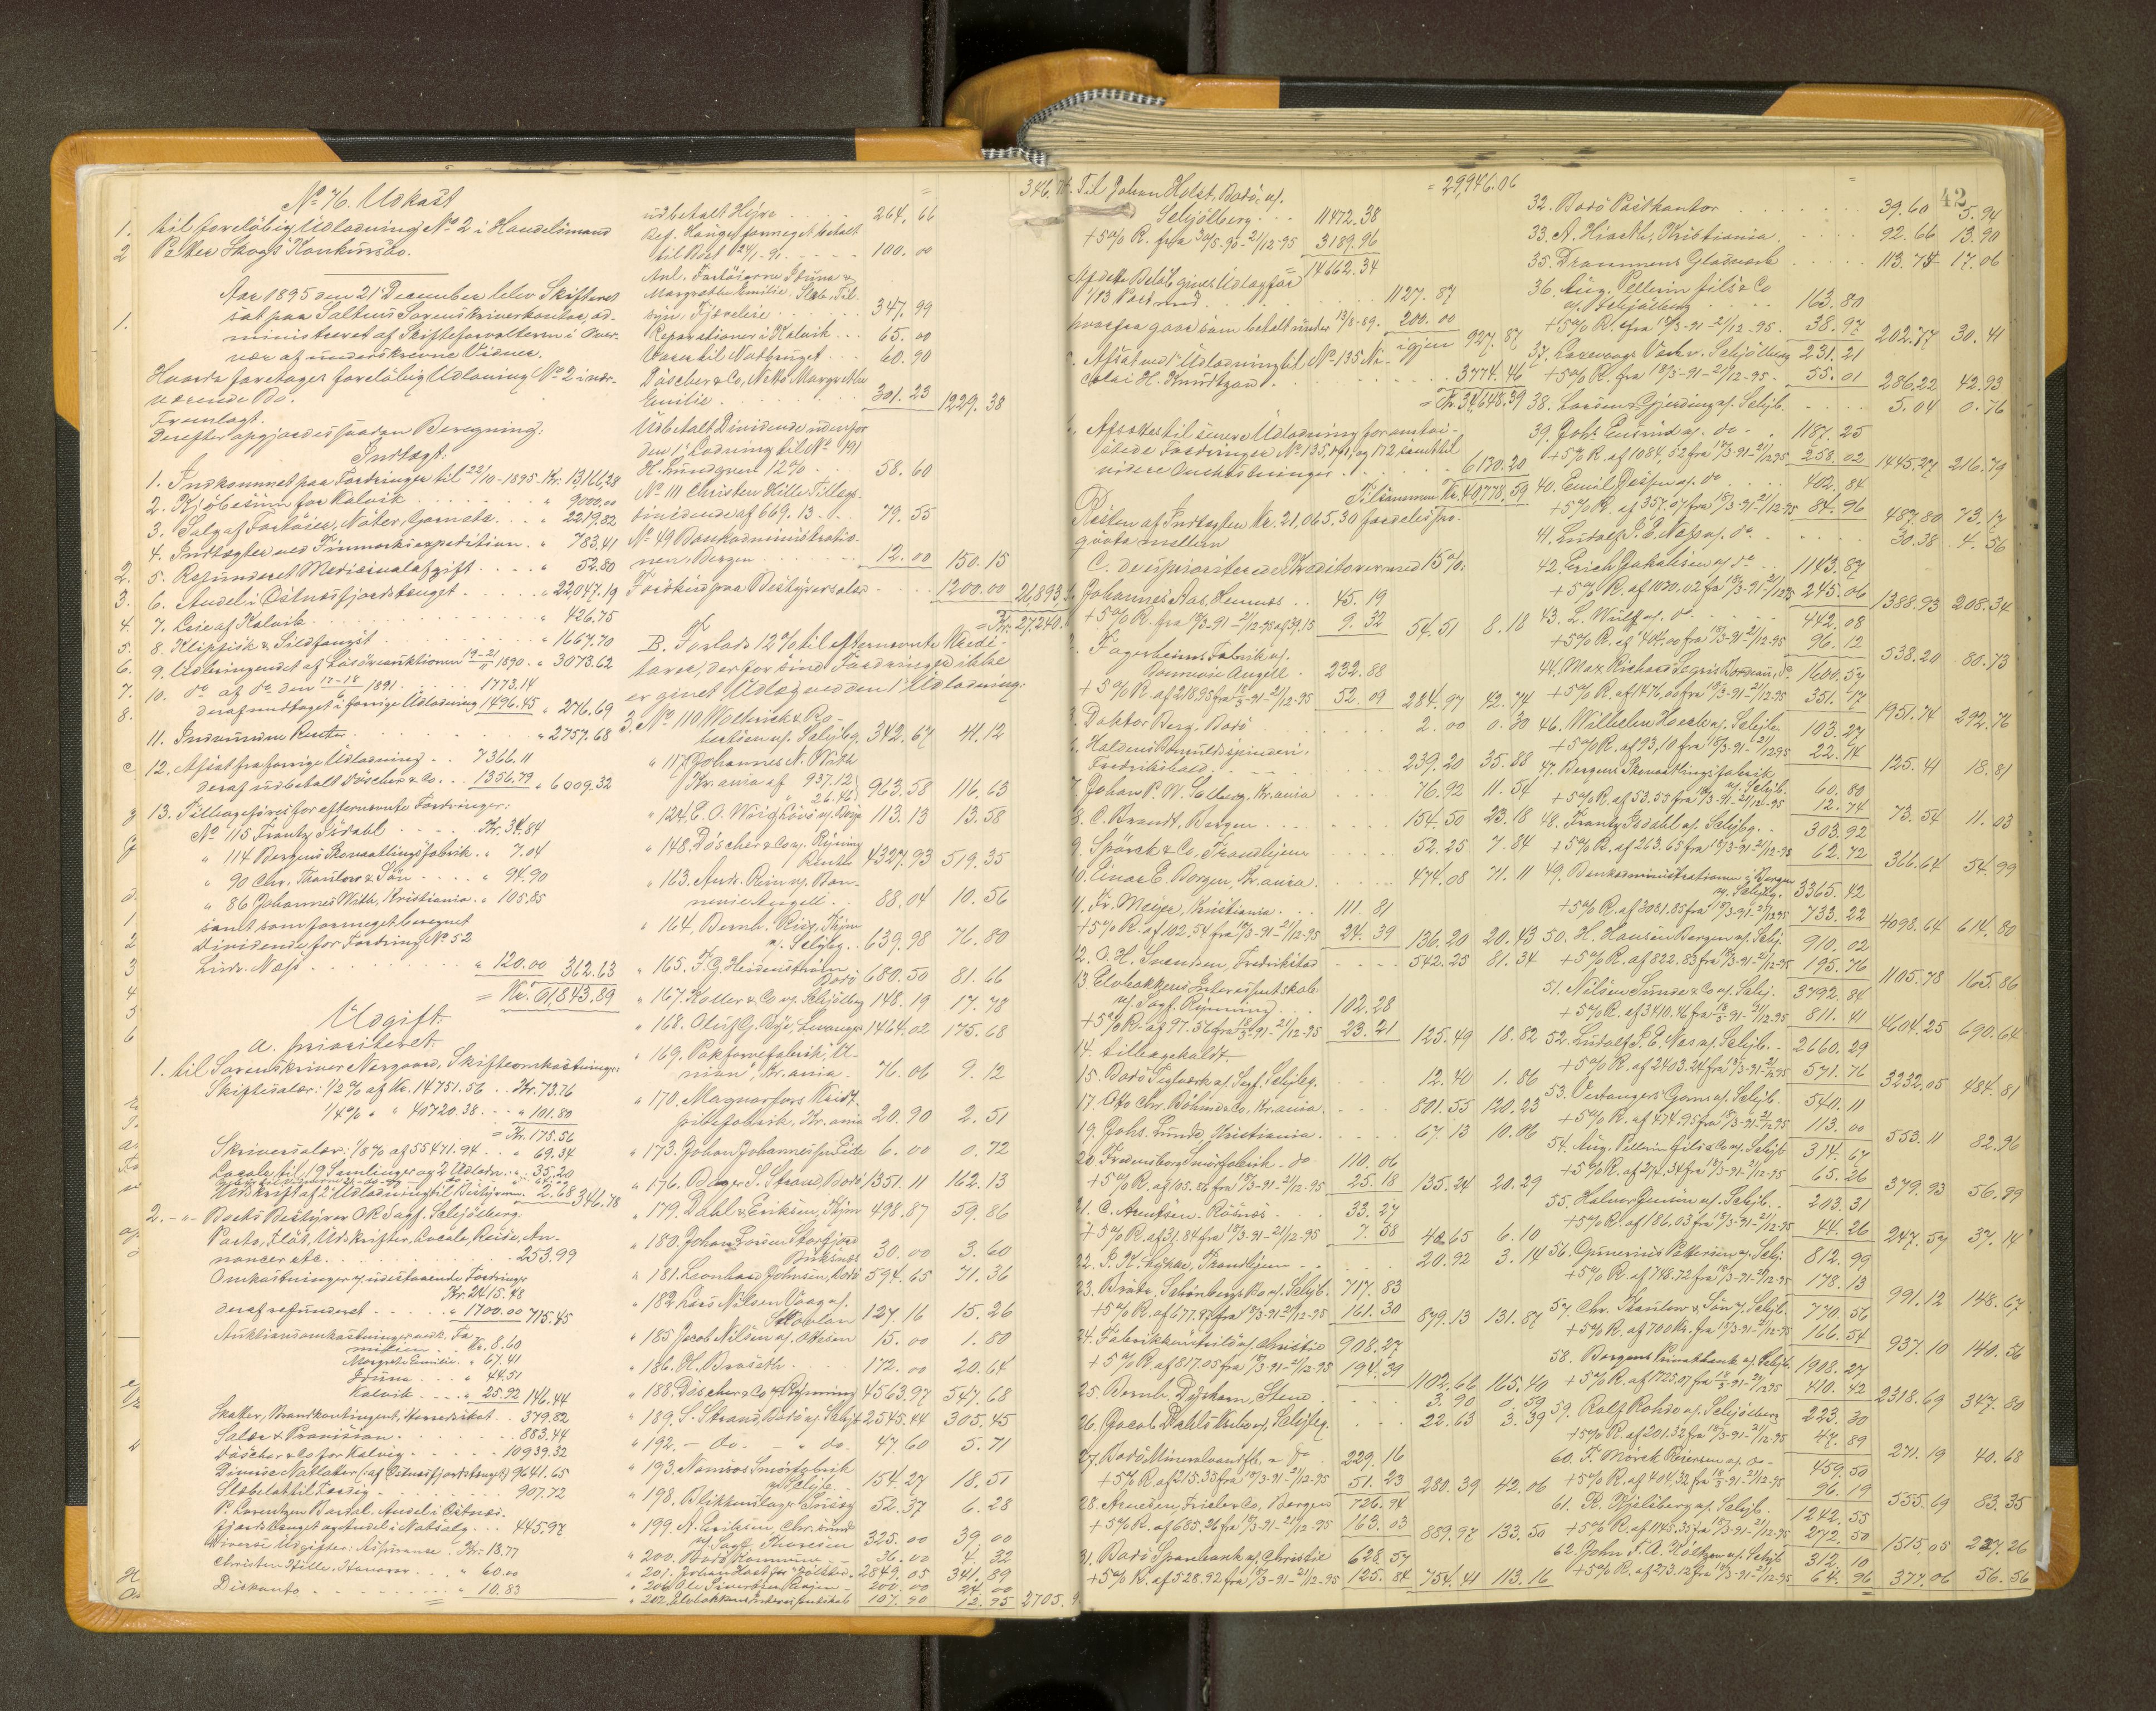 No 76. Udkast
til foreløbig Udlodning No 2 i Handelsmand
Petter Skogs Konkursbo.
Aar 1895 den 21 December blev Skifteret
sat paa Saltens Sorenskriverkontor, ad-
ministreret af Skifteforvalteren i Over-
vær af underskrevne Vidner.
Hvorda foretages foreløbig Udlodning No 2 i nær-
værende Bo.
Fremlagt.
Derefter opgjordes saadan Beregning:
Indtægt.
1. Indkommet paa Fordringer til 22/10-1895 Kr. 13,166,28
2. Kjøbesum for Kalvik " 9000.00
3. Salg af Fartøier, Nøter, Garn etc. " 2219.82
4. Indtægter ved Finmarksexpedition " 783.41
5. Refunderet Medicinalafgift " 52.80
6. Andel i Østnesfjordstænget " 22,047.19
7. Leie af Kalvik " 426.75
8. Klipfisk & Sildfangst " 1667.70
9. Udbringendet af Løsøreauktionen 19-21/5 1890 " 3073.62
10. do af do den 17-18/6 1891 1773.14
deraf medtaget i forrige Udlodning 1496.45 " 276.69
11. Indvundne Renter " 2757.68
12. Afsat fra forrige Udlodning 7366.11
deraf udbetalt Döscher & Co. 1356.79 " 6009.32
13. Tilbageføres for efternævnte Fordringer:
No 115 Frantz Isdahl Kr. 34.84
" 114 Bergens Skomatlingsfabrik " 7.04
" 90 Chr. Thaulow & Søn " 94.90
" 86 Johannes With, Kristiania " 105.85
samt som formeget beregnet
Dividende for Fordring No 52
Ludv. Næss " 120.00 362.63
= Kr. 61843.89
Udgift.
A. prioriteret.
1. til Sorenskriver Norgaard, Skifteomkostninger:
Skiftesalær: 1/2% af Kr. 14751.56 Kr. 73.76
1/4% " " 40720.38 " 101.80
= Kr. 175.56
Skriversalær: 1/8% af 55471.94 " 69.34
Locale til 19 Samlinger og 2 Udlodn. " 35.20
Udskrift af 2 Udlodning til Bestyreren 2.68 346.78
2. - " - Boets Bestyrer O.R.Sagf. Schjølberg:
Porto, Fløt, Udskrifter, Locale, Reise, An-
noncer etc. 253.99
Omkostninger vedr. udestaaende Fordringer
Kr. 2415.48
deraf refunderet " 1700.00 715.45
Auktionsomkostninger vedk. Fa-
milien Kr. 8.60
Margrete Emilie " 67.41
Iduna " 44.51
Kalvik " 25.92 146.44
Skatter, Brandkontingent, Herredsskat 379.82
Salær & Provision 883.44
Döscher & Co for Kalvig 10939.32
Diverse Notlaker (af Østnesfjordstænget) 9641.65
Slæbelaattil Faxsig 907.72
P. Lorentzen Bardal. Andel i Østnes-
fjordstænget og Andel i Notsalg 445.97
Diverse Udgifter: Assurance Kr. 18.77
Christen Hille, Honorar " 60.00
Diskonto " 10.83
udbetalt Hyre 264.66
Ref. Hauge formeget betalt
til Boet 24/1-91 100.00
Anl. Fartøierne Iduna &
Margrethe Emilie. Slæb, Til-
syn, Fjæreleie 347.99
Reparationer i Kalvik 65.00
Varer til Notbruget 60.90
Döscher & Co, Netto Margrethe
Emilie 301.23 1229.38
Udbetalt Dividende udenfor
den 1ste Lodning til No 191
H. Lundgren 12% 58.60
No 111 Christen Hille Tillægs-
dividende af 669.13 79.55
No 49 Bankadministratio-
nen, Bergen 12.00 150.15
Forskud paa Bestyrersalær 1200.00 26,893
= Kr. 27,240.
B. Forlods 12% til efternævnte Kredi-
torer, der for sine Fordringer ikke
er givet Udlæg ved den 1ste Udlodning:
3. No 110 Woltrick & Ro-
bertsen v/ Schjbg. 342.67 41.12
" 117 Johannes N. With
Kr.ania af 937.12 963.58 116.63
26.46
" 124 E. O. Wiig 113.13 13.58
" 148 Döscher & Co v/ Rynning
Renter 4327.93 519.35
" 163. Andr. Rem v/ Bon-
nevie Angell 88.04 10.56
" 164. Bernh. Riis, Thjem
v/ Schjbg. 639.98 76.80
" 165. F.G. Heidenstrøm
Bodø 680.50 81.66
" 167. Koller & Co v/ Schjølberg 148.19 17.78
" 168. Oluf G. Bye, Levanger 1464.02 175.68
" 169. Pakfarvefabrik "U-
nion", Kr.ania 76.06 9.12
" 170. Magnorfors Kridt-
pibefabrik, Kr.ania 20.90 2.51
" 173. Johan Johannessen Eide 6.00 0.72
" 176. Roger S. Strand Bodø 1351.11 162.13
" 179. Dahl & Eriksen, Thjem 498.87 59.86
" 180. Johan Larsen Storfjord
Buksnes 30.00 3.60
" 181. Leonhard Johnsen, Bodø 594.65 71.36
" 182. Lars Nilsen Vaag v/
127.16 15.26
" 185. Jacob Nilsen v/ Ottesen 15.00 1.80
" 186. H. Braseth 172.00 20.64
" 188. Döscher & Co v/ Rynning 4563.97 547.68
" 189. S. Strand, Bodø v/ Schjb 2545.44 305.45
" 192. - do - " do - 47.60 5.71
" 193. Namsos Smørfabrik
v/ Schjb. 154.27 18.51
" 198. Blikkenslager Sørsey 52.37 6.28
" 199. A. Eriksen, Chr.sund
v/ Sagf. Thoresen 325.00 39.00
" 200. Bodø Kommune 36.00 4.32
" 201. Johan Hast for 2849.05 341.89
" 206. Ole Sivertsen 200.00 24.00
" 202. Elvbakkens Interessentskab 107.90 12.95 2705.9
346.78
Til Johan Holst, Bodø, v/
Schjølberg 11472.38
+5% R. fra 30/5-90-21/12-95 3189.96
= 14662.34
Af dette Beløb gives Udlæg for
1/13 Part med 1127.87
hvorfra gaar som betalt under 13/8-89. 200.00
igjen 927.87
Afsat ved 1ste Udlodning til No 135 Ni-
colai H. Knudtzon 3774.46
= Kr. 34,648.39
Afsættes til senere Udlodning for omtvi-
stede Fordringer No 135, 171, og 172 samt til
videre Omkostninger 6130.20
Tilsammen Kr. 40,778.59
Resten af Indtægten Kr. 21,065.30 fordeles pro-
qvota mellem
C. de uprioriterede Kreditorer med 15%.
Johannes Aas, Hemnæs 45.19
+5% R. fra 18/3-91-21/12-95 af 39.13 9.32 54.51 8.18
Fagerheims Fabrik v/
Bonnevie Angell 232.88
+5% R. af 218.95 fra 18/3-91-21/12-95 52.09 284.97 42.74
Doktor Berg, Bodø 2.00 0.30
Haldens Bomuldsspinderi,
Fredrikshald 239.20 35.88
7. Johan P. W. Solberg, Kr.ania 76.92 11.54
8. C. Brandt, Bergen 154.50 23.18
9. Spørck & Co, Trondhjem 52.25 7.84
10. Einar E. Borgen, Kr.ania 474.08 71.11
11. Fr. Meyer, Kristiania 111.81
+5% R. af 102.54 fra 18/3-91-21/12-95 24.39 136.20 20.43
12. O. H. Svendsen, Fredrikstad 542.25 81.34
13. Elvbakkens Interessentskab
v/ Sagf. Rynning 102.28
+5% R. af 97.56 fra 18/3-91-21/12-95 23.21 125.49 18.82
14. tilbagekaldt.
15. Bodø Teglværk v/ Sagf. Schjbg. 12.40 1.86
17. Otto Chr. Bøhme & Co, Kr.ania 801.55 120.23
19. Johs. Lunde, Kristiania 67.13 10.06
20. Fredensborg Smørfabrik - do 110.06
+5% R. af 105.86 fra 18/3-91-21/12-95 25.18 135.24 20.29
21. C. Arentsen, Røsnes 33.27
+5% R. af 31.84 fra 18/3-91-21/12-95 7.58 40.65 6.10
22. I. N. Skykar, Trondhjem 20.92 3.14
23. Brøtz Schønbergs Bo v/ Schjb. 717.83
+5% R. af 677.97 fra 18/3-91-21/12-95 161.30 879.13 131.87
24. v/ Christie 908.27
+5% R. af 817.05 fra 18/3-91-21/12-95 194.39 1102.66 165.40
25. Bernh. Dybham, Stene 3.90 0.59
26. Jacob Dahls Enke v/ Schjbg. 22.63 3.39
27. Bodø Mineralvandfb. - do 229.16
+5% R. af 215.35 fra 18/3-91-21/12-95 51.23 280.39 42.06
28. Arnesen Friele & Co, Bergen 726.94
+5% R. af 685.26 fra 18/3-91-21/12-95 163.03 889.97 133.50
31. Bodø Sparebank v/ Christie 628.57
+5% R. af 528.92 fra 18/3-91-21/12-95 125.84 754.41 113.16
= 29,946.06
42
32. Bodø Postkontor 39.60 5.94
33. A. Hiorth, Kristiania 92.66 13.90
35. Drammens Glasværk 113.74 17.06
36. Aug. Pellerin fils & Co
v/ Schjølberg 163.80
+5% R. fra 18/3-91-21/12-95. 38.97 202.77 30.41
37. Laxevaags Værk v/ Schjølberg 231.21
+5% R. fra 18/3-91-21/12-95. 55.01 286.22 42.93
38. Larsen & Gjerding v/ Schjb. 5.04 0.76
39. Johs Ensrud v/ do 1187.25
+5% R. af 1084,52 fra 18/3-91-21/12 95 258.02 1445.27 216.79
40. Emil Jespen v/ do 402.84
+5% R. af 357.07 fra 18/3-91-21/12-95 84.96 487.80 73.17
41. Ludolf J. E. Næss v/ do 30.38 4.56
42. Erich Jakobsen v/ do 1143.87
+5% R. af 1030.02 fra 18/3-91-21/12 95 245.06 1388.93 208.34
43. L. Wulf v/ do 442.08
+5% R. af 404.00 fra 18/3-91-21/12-95 96.12 538.20 80.73
44. Max Richard 1600.57
+5% R. af 1476,00 fra 18/3-91-21/12-95 351.17 1951.74 292.76
46. Wilhelm Hoech v/ Schjb. 103.27
+5% R. af 93.10 fra 18/3-91-21/12 95 22.14 125.41 18.81
47. Bergens Skomatlingsfabrik
v/ Schjb. 60.80
+5% R. af 53.55 fra 18/3-91-21/12-95 12.74 73.54 11.03
48. Frantz Isdahl v/ Schjbg. 303.92
+5% R. af 263.65 fra 18/3-91-21/12-95 62.72 366.64 54.99
49. Bankadministrationen i Bergen
v/ Schjbg. 3365.42
+5% R. af 3081.85 fra 18/3-91-21/12 95 733.22 4098.64 614.80
50. H. Hansen Bergen v/ Schj. 910.02
+5% R. af 822.83 fra 18/3-91-21/12-95 195.76 1105.78 165.86
51. Nilsen Sunde & Co v/ Schj. 3792.84
+5% R. af 3410.46 fra 18/3-91-21/12-95 811.41 4604.25 690.64
52. Ludolf J. E. Næs v/ Schjb. 2660.29
+5% R. af 2403.24 fra 18/3-91-21/12-95 571.76 3232.05 484.81
53. Vestanger Garn v/ Schjb. 540.11
+5% R. af 474.95 fra 18/3-91-21/12-95 113.00 553.11 82.96
54. Aug. Pellerin Fils & Co v/ Schjb 314.67
+5% R. af 274.34 fra 18/3-91-21/12-95 65.26 379.93 56.99
55. Halvor Jensen v/ Schjb. 203.31
+5% R. af 186.03 fra 18/3-91-21/12-95 44.26 247.57 37.14
56. Gunerius Pettersen v/ Schj. 812.99
+5% R. af 748.72 fra 18/3-91-21/12-95 178.13 991.12 148.67
57. Chr. Thaulow & Søn v/ Schjb. 770.56
+5% R. af 700 Kr. fra 18/3-91-21/12-95 166.54 937.10 140.56
58. Bergens Privatbank v/ Schjb. 1908.27
+5% R. af 1725.07 fra 18/3-91-21/12 95 410.42 2318.69 347.80
59. Ralf Rohde v/ Schjölberg 223.30
+5% R. af 201.32 fra 18/3-91-21/12-95 47.89 271.19 40.68
60. F. Mørck Reiersen v/ do 459.50
+5% R. af 404.32 fra 18/3-91-21/12-95 96.19 555.69 83.35
61. R. Kjelsberg v/ Schjb. 1242.55
+5% R. af 1145.35 fra 18/3-91-21/12-95 272.50 1515.05 227.26
62. John F. A. Holtzen v/ Schjb 312.10
+5% R. af 273.12 fra 18/3-91-21/12-95 64.96 377.06 56.56